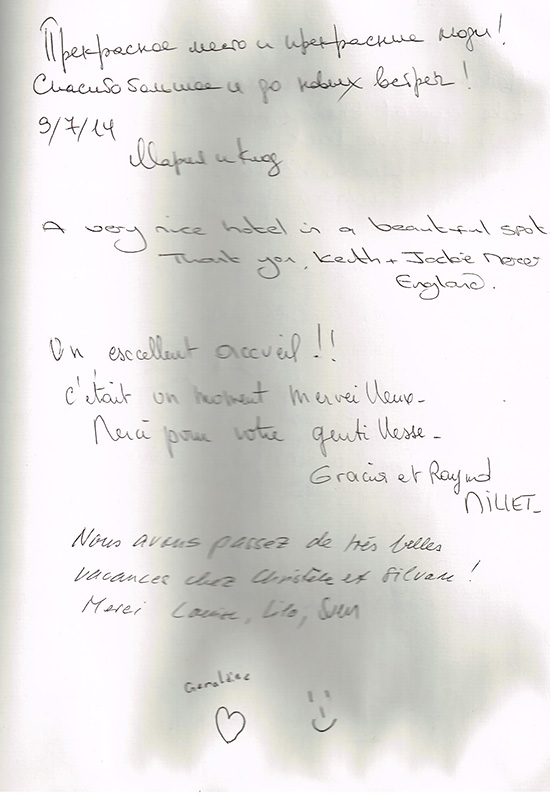 Прекрасное место и прекрасные люди!
Спасибо большое и до новых встреч!
9/7/14
Мария и Клод
A very nice hotel in a beautiful spot
Thank you, Keith + Jackie Mercer
England.
Un escellent accueil !!
c'était un moment merveilleux_
Merci pour votre gentillesse_
et Raymond
MILLET_
Nous avons passez de très belles
vacances chez Christèle et Silvare !
Merci Louise, Lilo, Sven